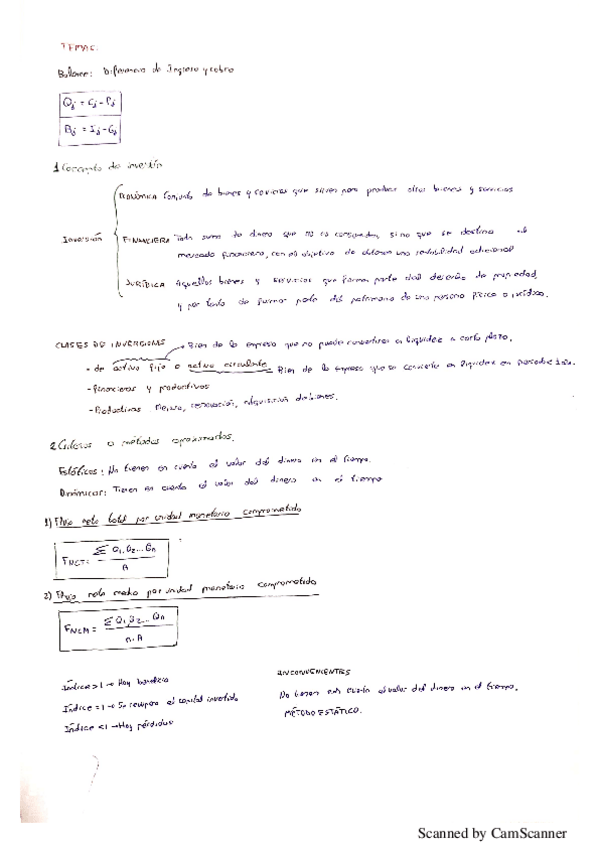 TEMA
Balance: Diferencia de Ingreso y cobro
Qj = Cj - Pj
Bj = Ij - Gj
1 Concepto de inversión
ECONÓMICA Conjunto de bienes y servicios que sirven para producir otros bienes y servicios
Inversión
FINANCIERA Toda suma de dinero que no es consumida, sino que se destina al
mercado financiero, con el objetivo de obtener una rentabilidad adicional
JURÍDICA Aquellos bienes y servicios que forman parte del derecho de propiedad,
y por tanto de formar parte del patrimonio de una persona física o jurídica.
CLASES DE INVERSIONES Bien de la empresa que no puede convertirse en liquidez a corto plazo.
- de activo fijo o activo circulante Bien de la empresa que se convierte en liquidez en
- Financieras y productivas
- Productivas: Mejora, renovación, adquisición de bienes.
2 Criterios o métodos aproximados.
Estáticos: No tienen en cuenta el valor del dinero en el tiempo.
Dinámicos: Tienen en cuenta el valor del dinero en el tiempo
1) Flujo neto total por unidad monetaria comprometida
FNCT = Σ Q1, Q2... Qn
A
2) Flujo neto medio por unidad monetaria comprometida
FNCM = Σ Q1, Q2... Qn
n. A
Índice > 1 → Hay beneficio
Índice = 1 → Se recupera el capital invertido
Índice < 1 → Hay pérdidas
INCONVENIENTES
No tienen en cuenta el valor del dinero en el tiempo.
MÉTODO ESTÁTICO.
Scanned by CamScanner